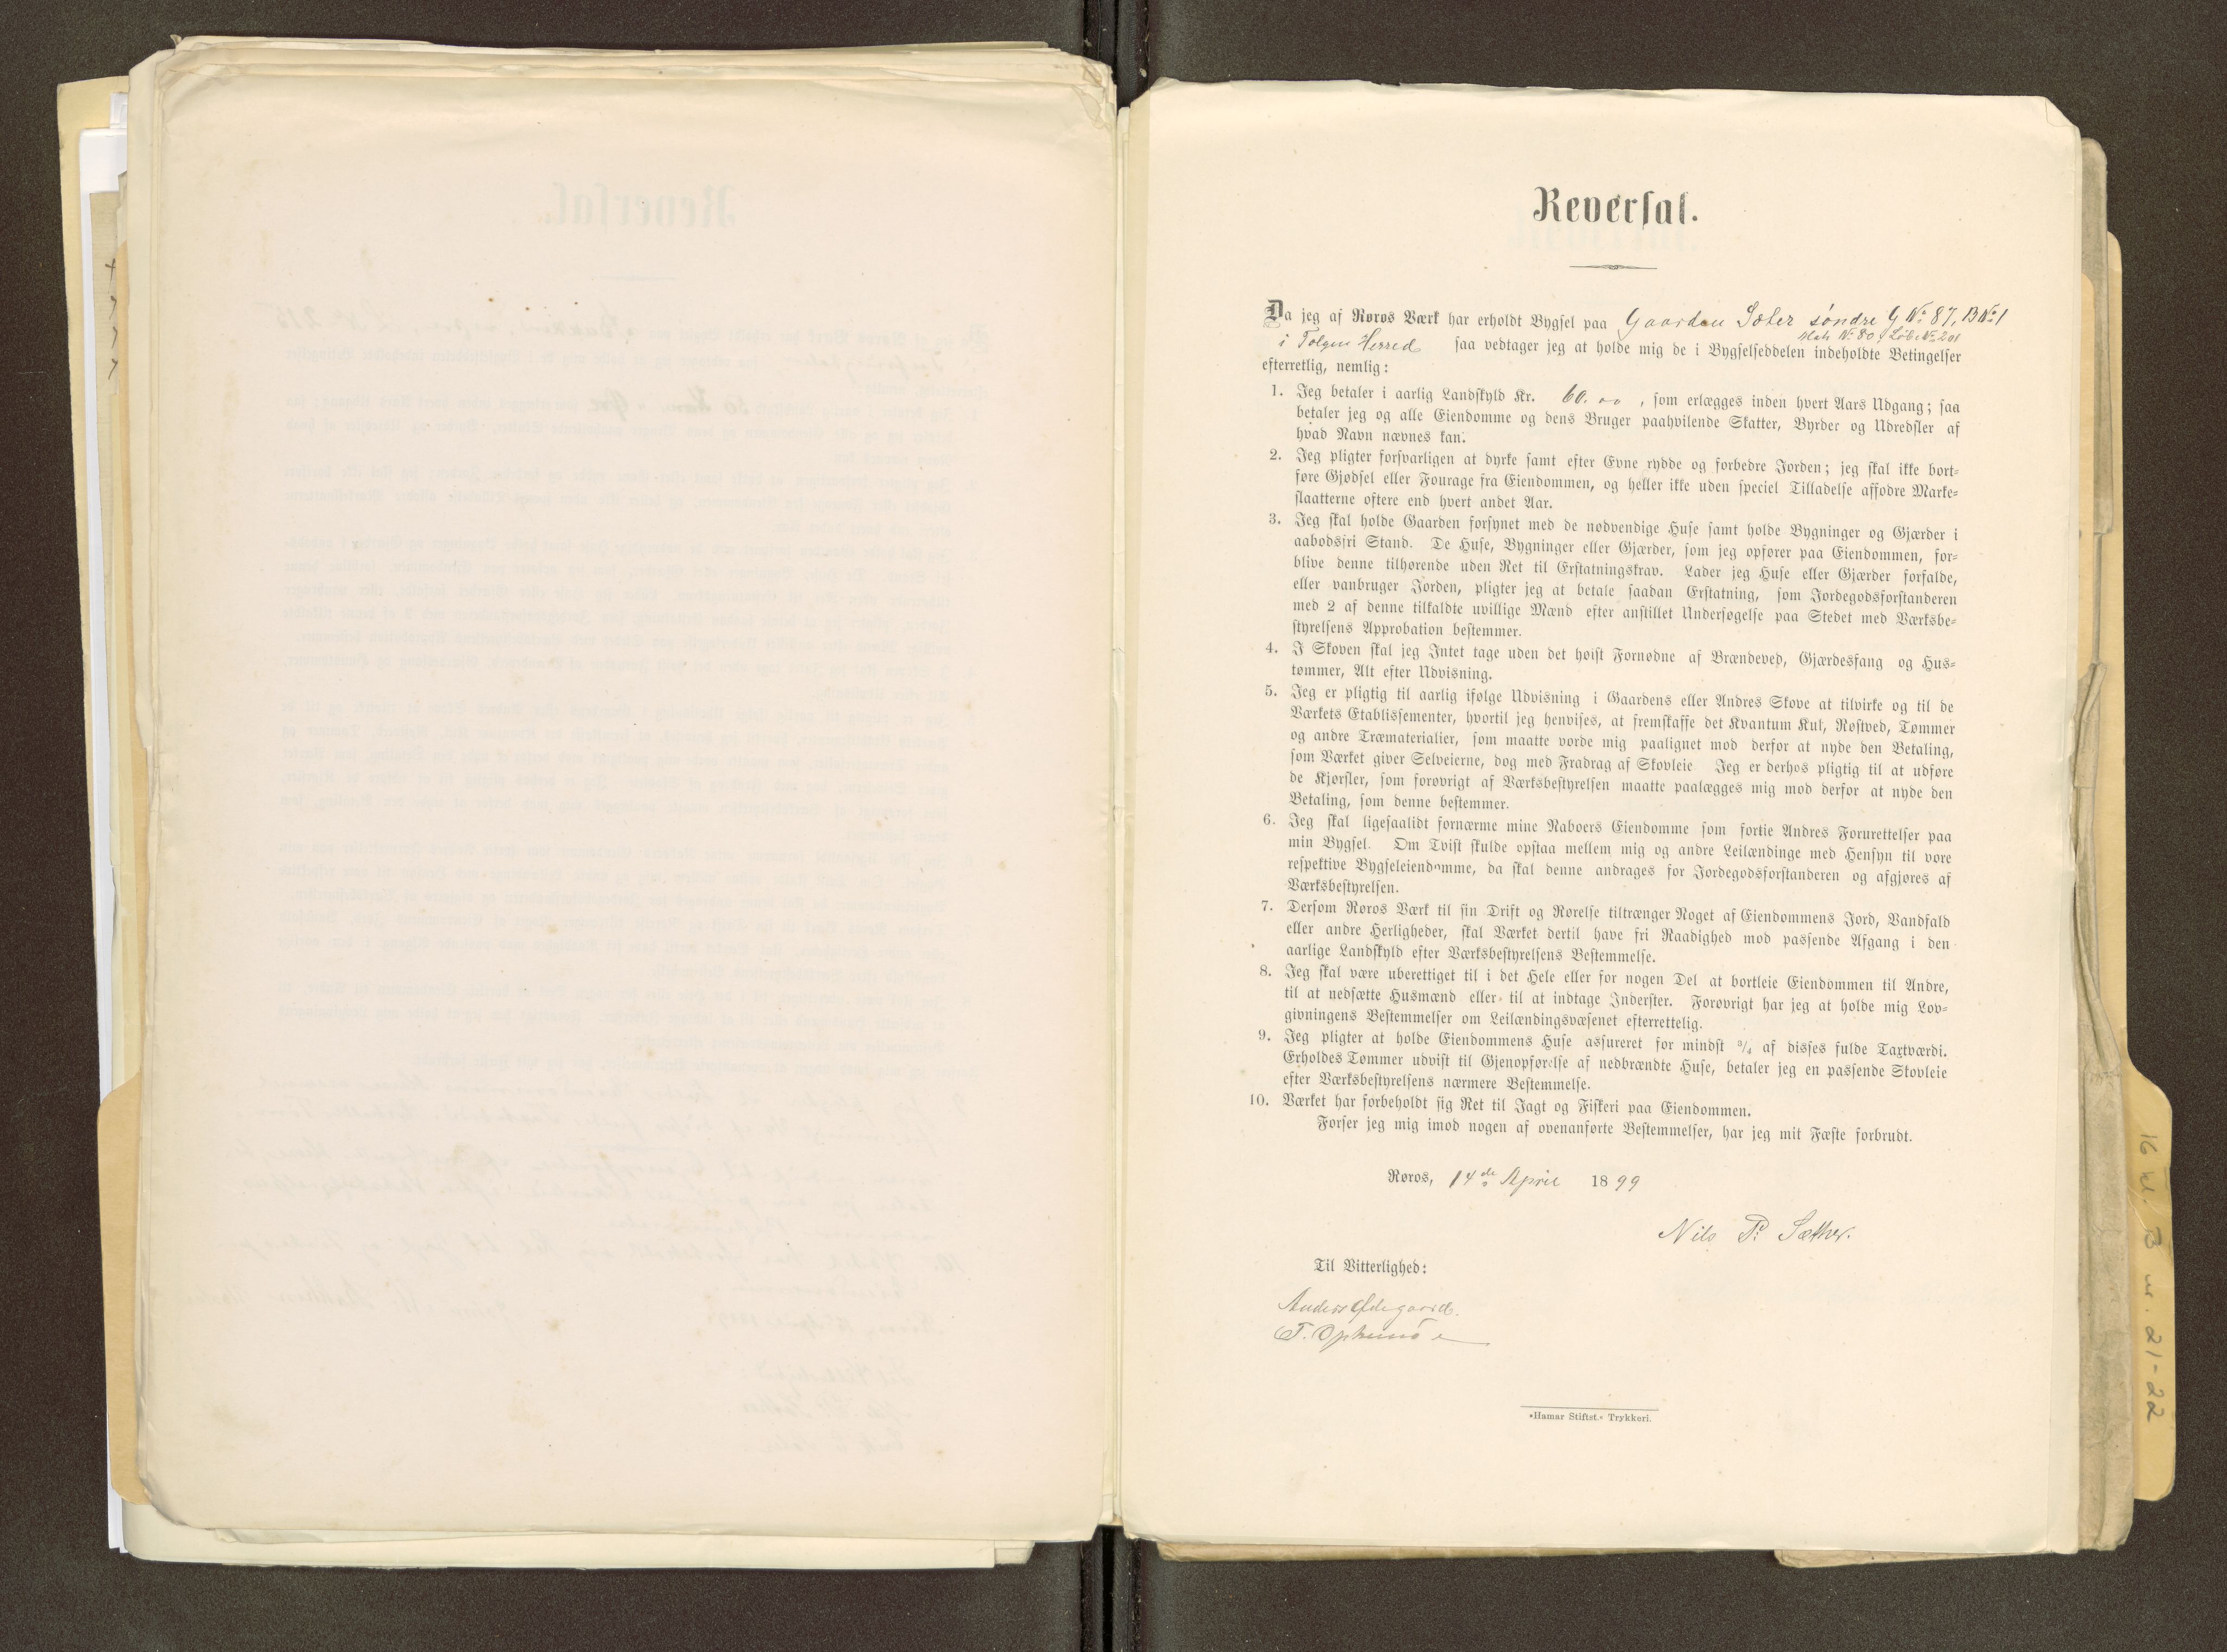 Reversal.
Da jeg af Røros Værk har erholdt Bygsel paa Gaarden Sæter søndre G No 87, B No 1
Matr No 80, Løbe No 201
i Tolgen Herred saa vedtager jeg at holde mig de i Bygselseddelen indeholdte Betingelser
efterretlig, nemlig:
1. Jeg betaler i aarlig Landskyld Kr. 60.00, som erlægges inden hvert Aars Udgang; saa
betaler jeg og alle Eiendomme og dens Bruger paahvilende Skatter, Byrder og Udredsler af
hvad Navn nævnes kan.
2. Jeg pligter forsvarligen at dyrke samt efter Evne rydde og forbedre Jorden; jeg skal ikke bort-
føre Gjødsel eller Fourage fra Eiendommen, og heller ikke uden speciel Tilladelse affodre Marke-
slaatterne oftere end hvert andet Aar.
3. Jeg skal holde Gaarden forsynet med de nødvendige Huse samt holde Bygninger og Gjærder i
aabodsfri Stand. De Huse, Bygninger eller Gjærder, som jeg opfører paa Eiendommen, for-
blive denne tilhørende uden Ret til Erstatningskrav. Lader jeg Huse eller Gjærder forfalde,
eller vanbruger Jorden, pligter jeg at betale saadan Erstatning, som Jordegodsforstanderen
med 2 af denne tilkaldte uvillige Mænd efter anstillet Undersøgelse paa Stedet med Værksbe-
styrelsens Approbation bestemmer.
4. I Skoven skal jeg Intet tage uden det høist Fornødne af Brændeved, Gjærdesfang og Hus-
tømmer, Alt efter Udvisning.
5. Jeg er pligtig til aarlig ifølge Udvisning i Gaardens eller Andres Skove at tilvirke og til de
Værkets Etablissementer, hvortil jeg henvises, at fremskaffe det Kvantum Kul, Røstved, Tømmer
og andre Træmaterialier, som maatte vorde mig paalignet mod derfor at nyde den Betaling,
som Værket giver Selveierne, dog med Fradrag af Skovleie Jeg er derhos pligtig til at udføre
de Kjørsler, som forøvrigt af Værksbestyrelsen maatte paalægges mig mod derfor at nyde den
Betaling, som denne bestemmer.
6. Jeg skal ligesaalidt fornærme mine Naboers Eiendomme som fortie Andres Forurettelser paa
min Bygsel. Om Tvist skulde opstaa mellem mig og andre Leilændinge med Hensyn til vore
respektive Bygseleiendomme, da skal denne andrages for Jordegodsforstanderen og afgjøres af
Værksbestyrelsen.
7. Dersom Røros Værk til sin Drift og Rørelse tiltrænger Noget af Eiendommens Jord, Vandfald
eller andre Herligheder, skal Værket dertil have fri Raadighed mod passende Afgang i den
aarlige Landskyld efter Værksbestyrelsens Bestemmelse.
8. Jeg skal være uberettiget til i det Hele eller for nogen Del at bortleie Eiendommen til Andre,
til at nedsætte Husmænd eller til at indtage Inderster. Forøvrigt har jeg at holde mig Lov-
givningens Bestemmelser om Leilændingsvæsenet efterrettelig.
9. Jeg pligter at holde Eiendommens Huse assureret for mindst 3/4 af disses fulde Taxtværdi.
Erholdes Tømmer udvist til Gjenopførelse af nedbrændte Huse, betaler jeg en passende Skovleie
efter Værksbestyrelsens nærmere Bestemmelse.
10. Værket har forbeholdt sig Ret til Jagt og Fiskeri paa Eiendommen.
Forser jeg mig imod nogen af ovenanførte Bestemmelser, har jeg mit Fæste forbrudt.
Røros, 14de April 1899
Nils P. Sæther.
Til Vitterlighed:
Anders Ødegaard.
»Hamar Stiftst.« Trykkeri.
16 kl. B nr. 21-22